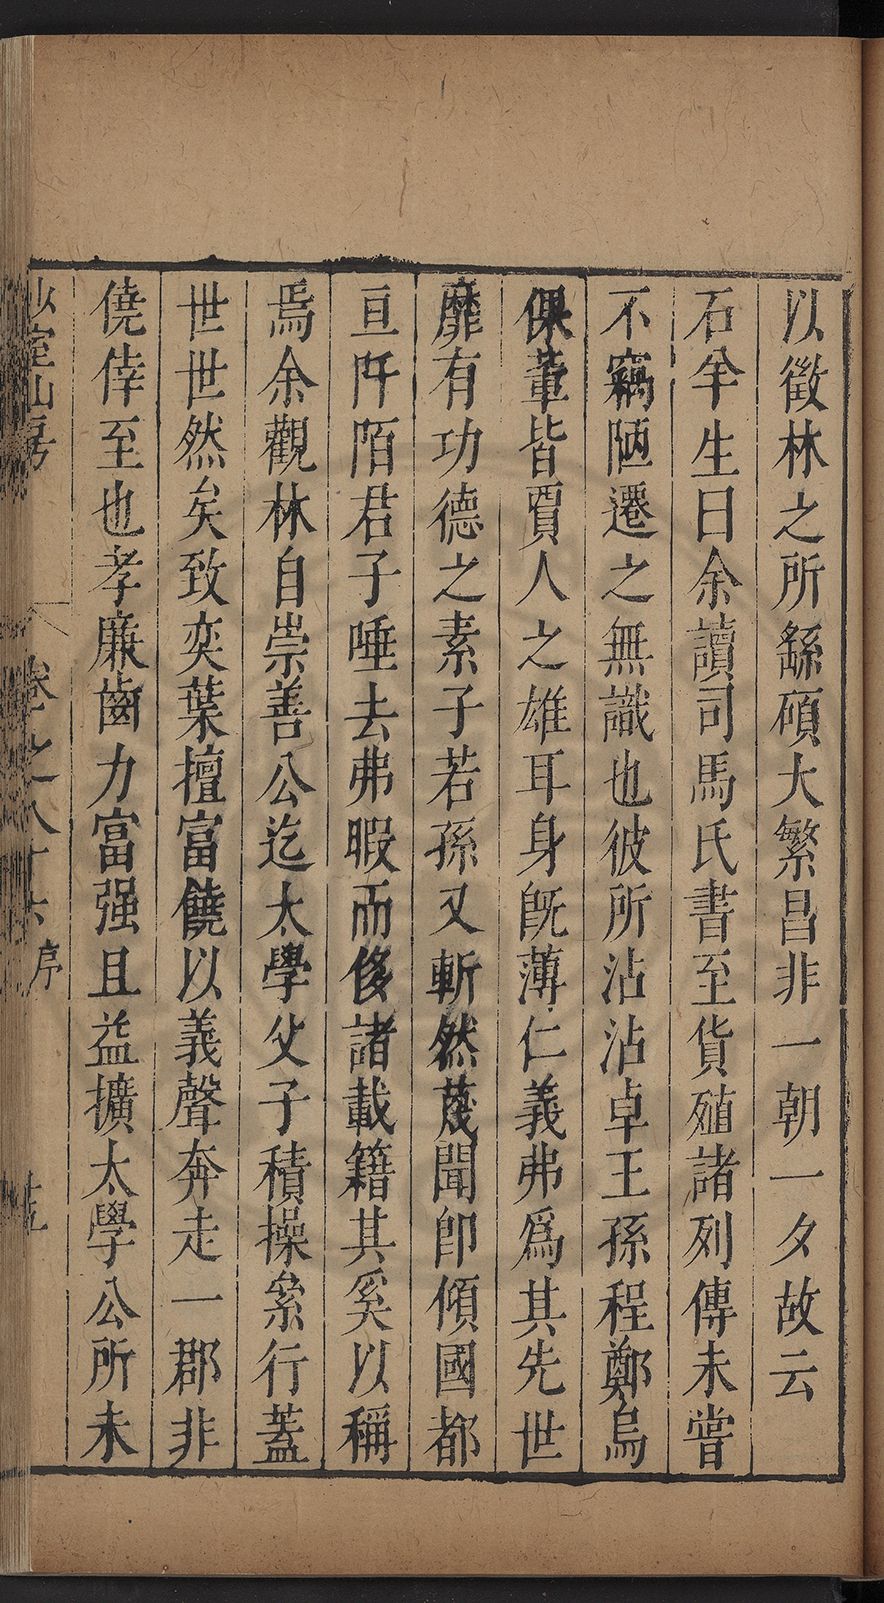 以徵林之所繇碩大繁昌非一朝一夕故云
石羊生曰余讀司馬氏書至貨殖諸列傳未嘗
不竊陋遷之無識也彼所沾沾卓王孫程鄭烏
倮輩皆賈人之雄耳身旣薄仁義弗爲其先世
靡有功德之素子若孫又斬然蔑聞卽傾國都
亘阡陌君子唾去弗暇而侈諸載籍其奚以稱
焉余觀林自崇善公迄太學父子積操絫行蓋
世世然矣致奕葉擅富饒以義聲奔走一郡非
僥倖至也孝廉齒力富强且益擴太學公所未
少室山房 卷之八十六序